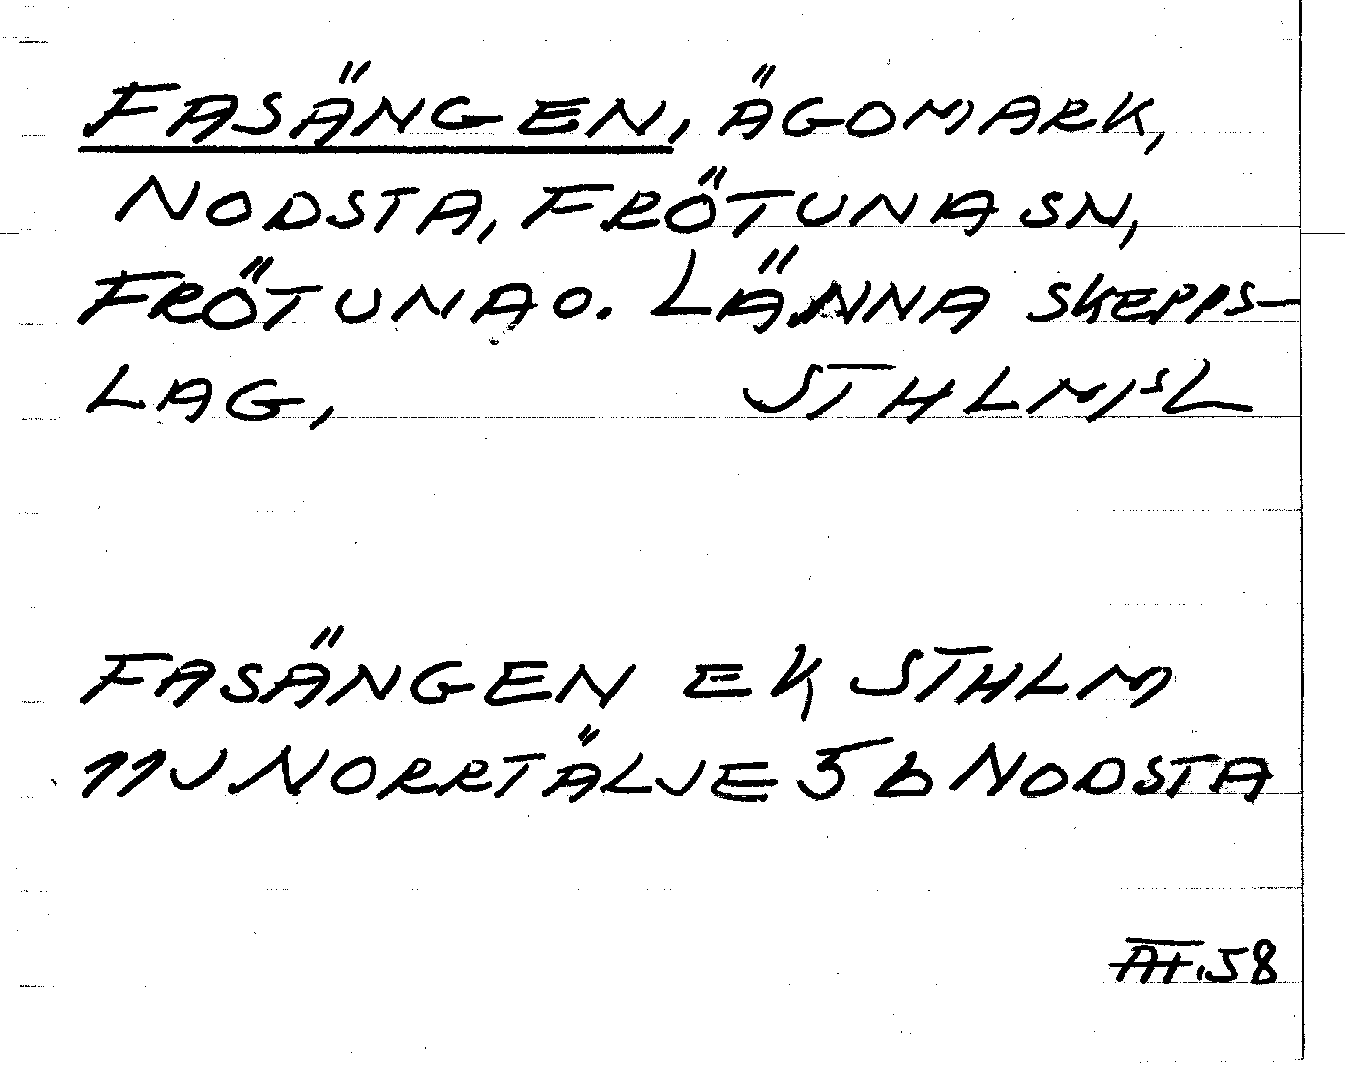 FASÄNGEN, ÄGOMARK,
NODSTA, FRÖTUNA SN,
FRÖTUNA O. LÄNNA SKEPPS-
LAG, STHLMS L
FASÄNGEN EK STHLM
11J NORRTÄLJE 5b NODSTA
AF.58